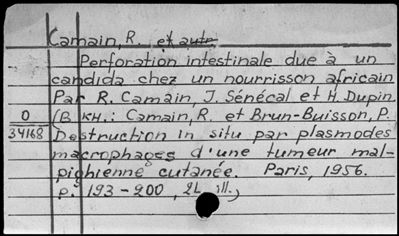 Camain, R. et autr.
Perforation intestinale due à un
candida chez un nourrisson africain
Par R. Camain, J. Sénécal et H. Dupin.
0 (В кн.: Camain, R. et Brun-Buisson, P.
34168 Destruction in situ par plasmodes
macrophages d'une tumeur mal-
pighienne cutanée. Paris, 1956.
p. 193-200, ill.,